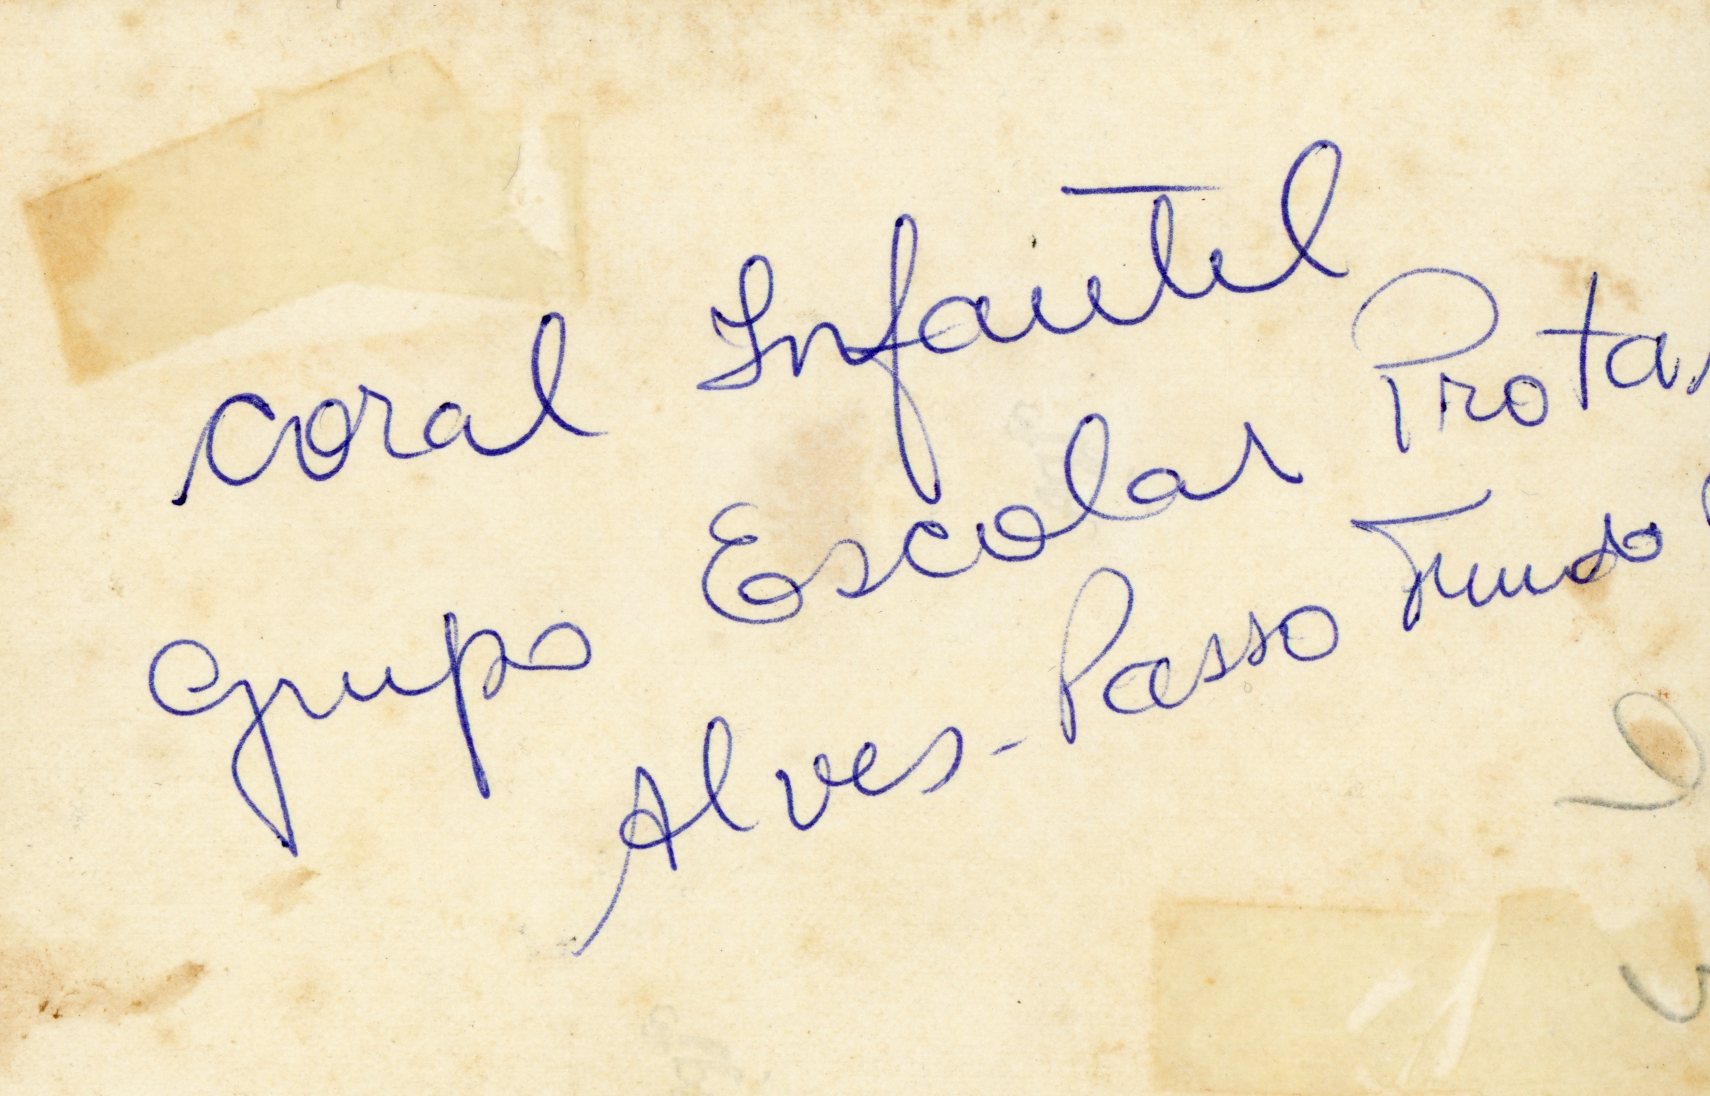 Coral Infantil
Grupo Escolar Prota
Alves - Passo Fundo